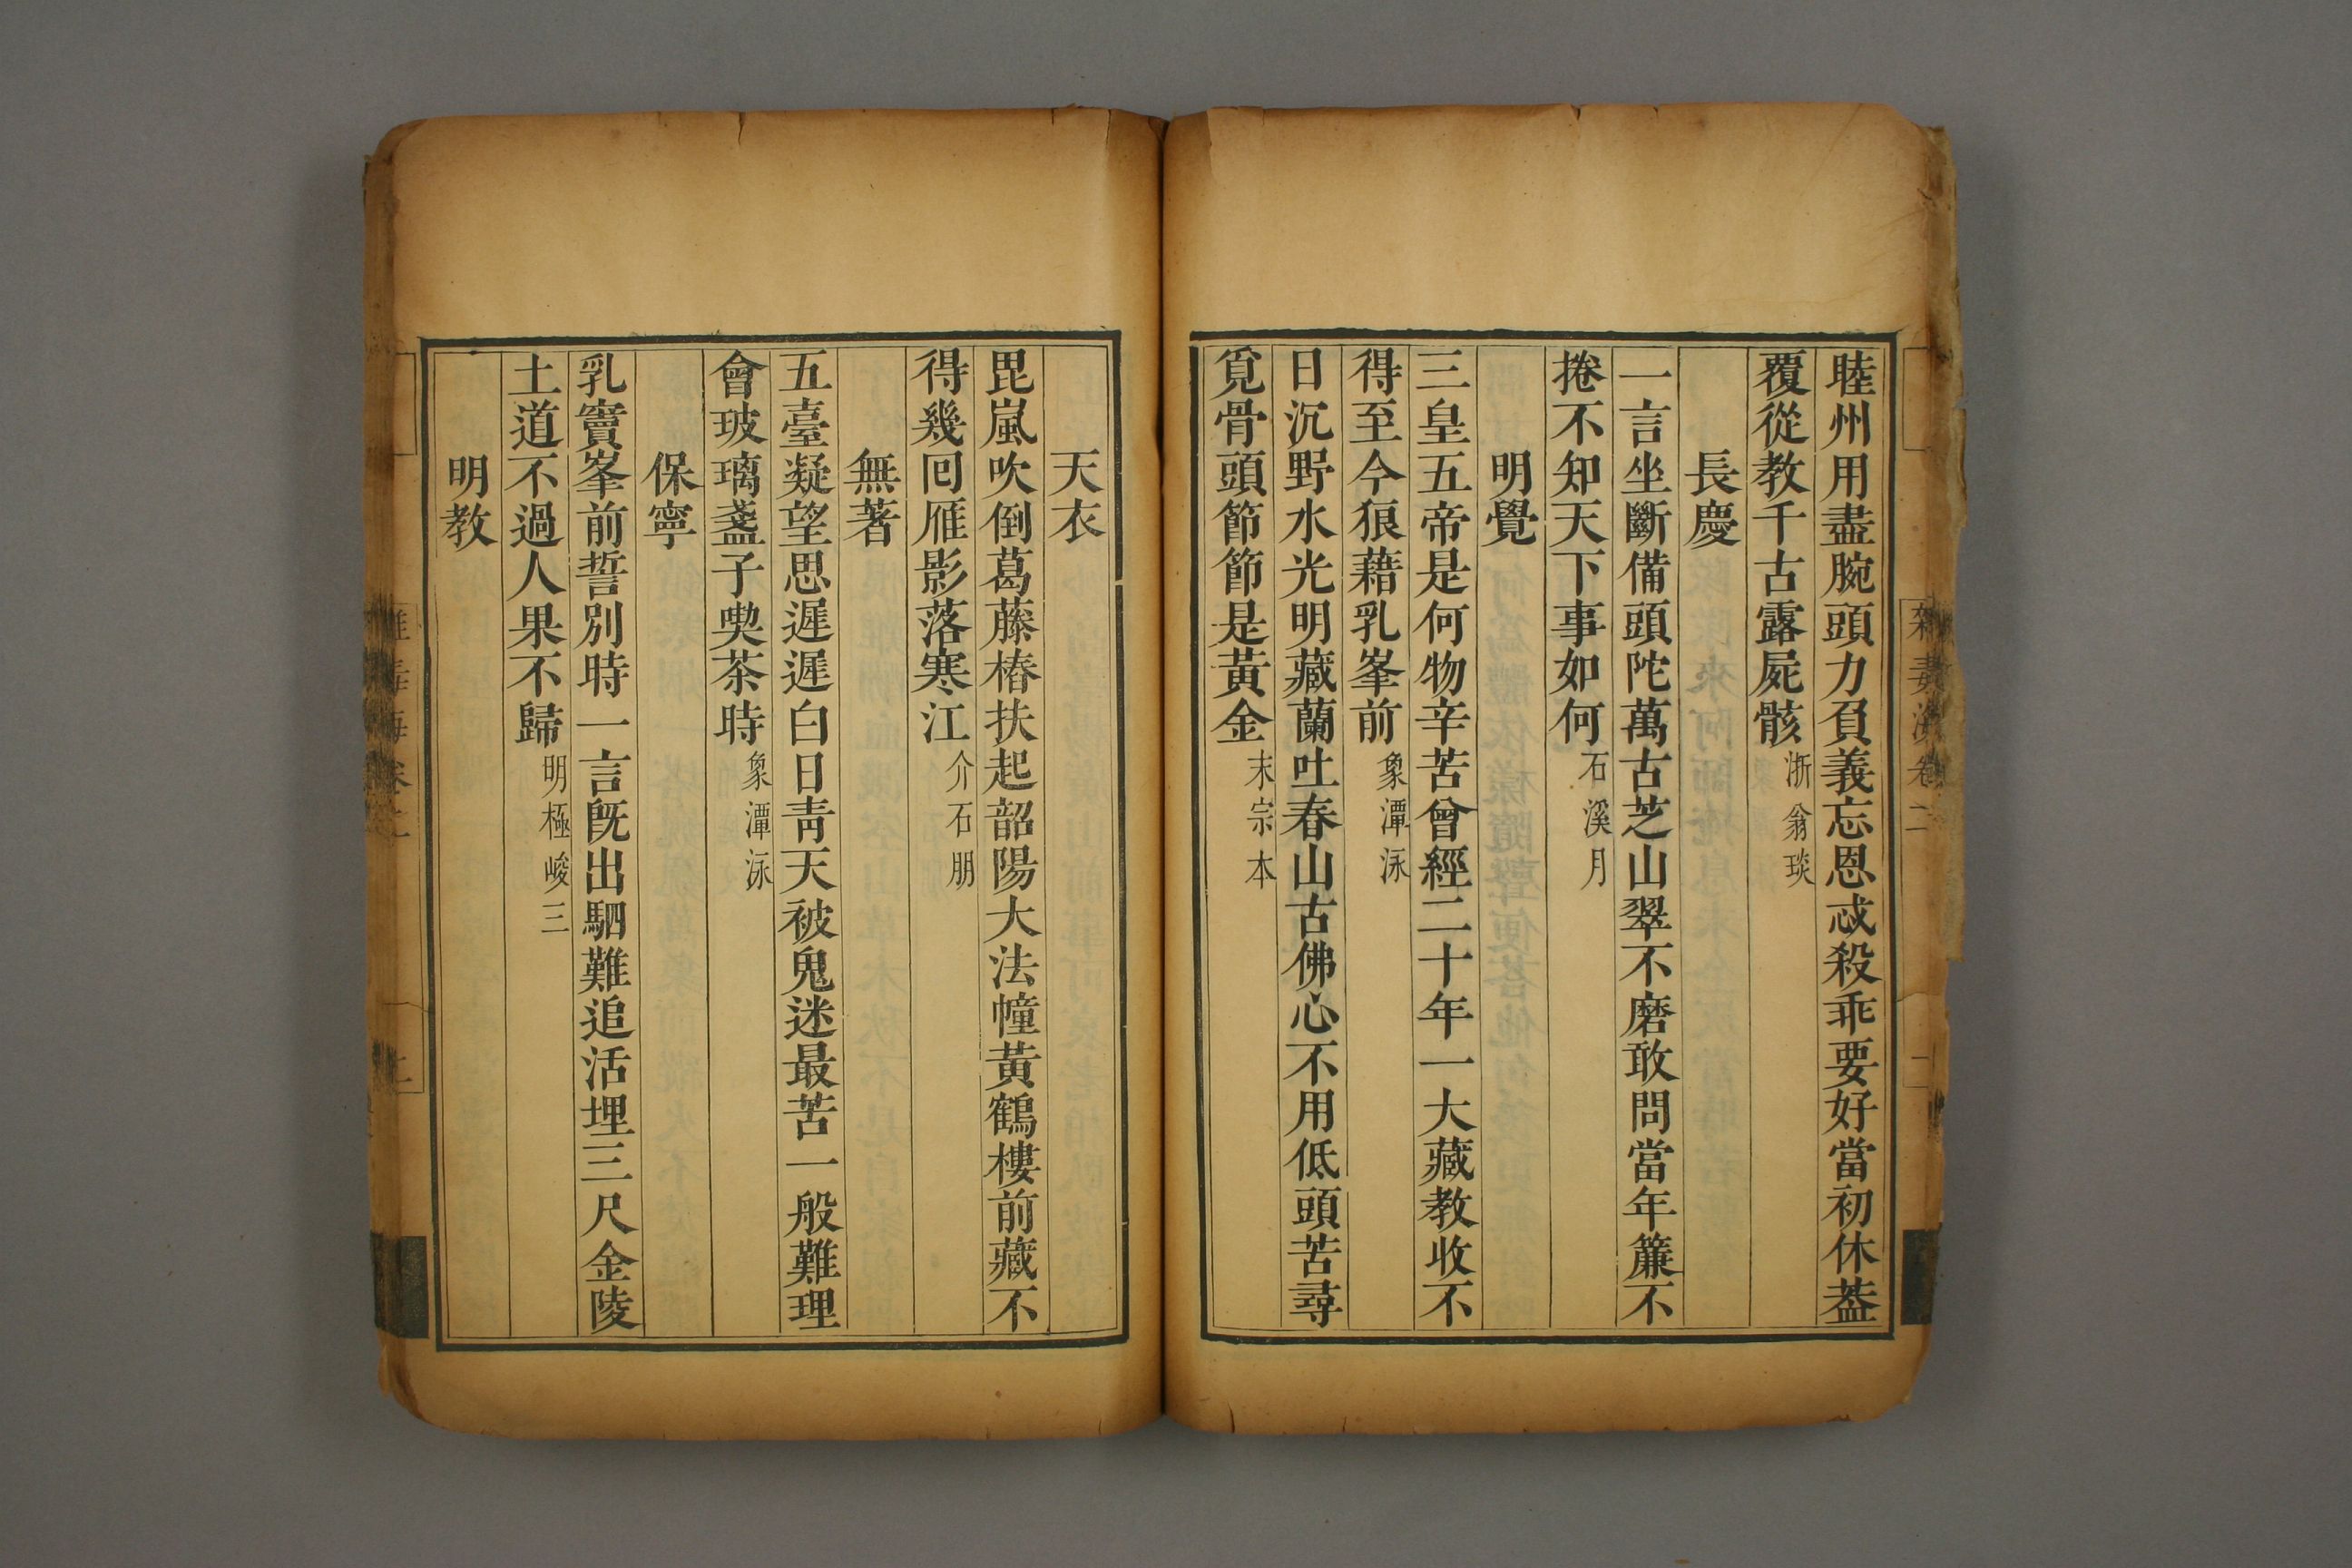 睦州用盡腕頭力負義忘恩忒殺乖要好當初休葢
覆從教千古露屍骸 浙翁琰
長慶
一言坐斷備頭陀萬古芝山翠不磨敢問當年簾不
捲不知天下事如何 石溪月
明覺
三皇五帝是何物辛苦曾經二十年一大藏教收不
得至今狼藉乳峯前 象潭泳
日沉野水光明藏蘭吐春山古佛心不用低頭苦尋
覓骨頭節節是黃金 末宗本
天衣
毘嵐吹倒葛藤樁扶起韶陽大法幢黃鶴樓前藏不
得幾囘雁影落寒江 介石朋
無著
五臺凝望思遲遲白日靑天被鬼迷最苦一般難理
會玻璃盞子喫茶時 象潭泳
保寧
乳竇峯前誓別時一言旣出駟難追活埋三尺金陵
土道不過人果不歸 明極峻三
明教